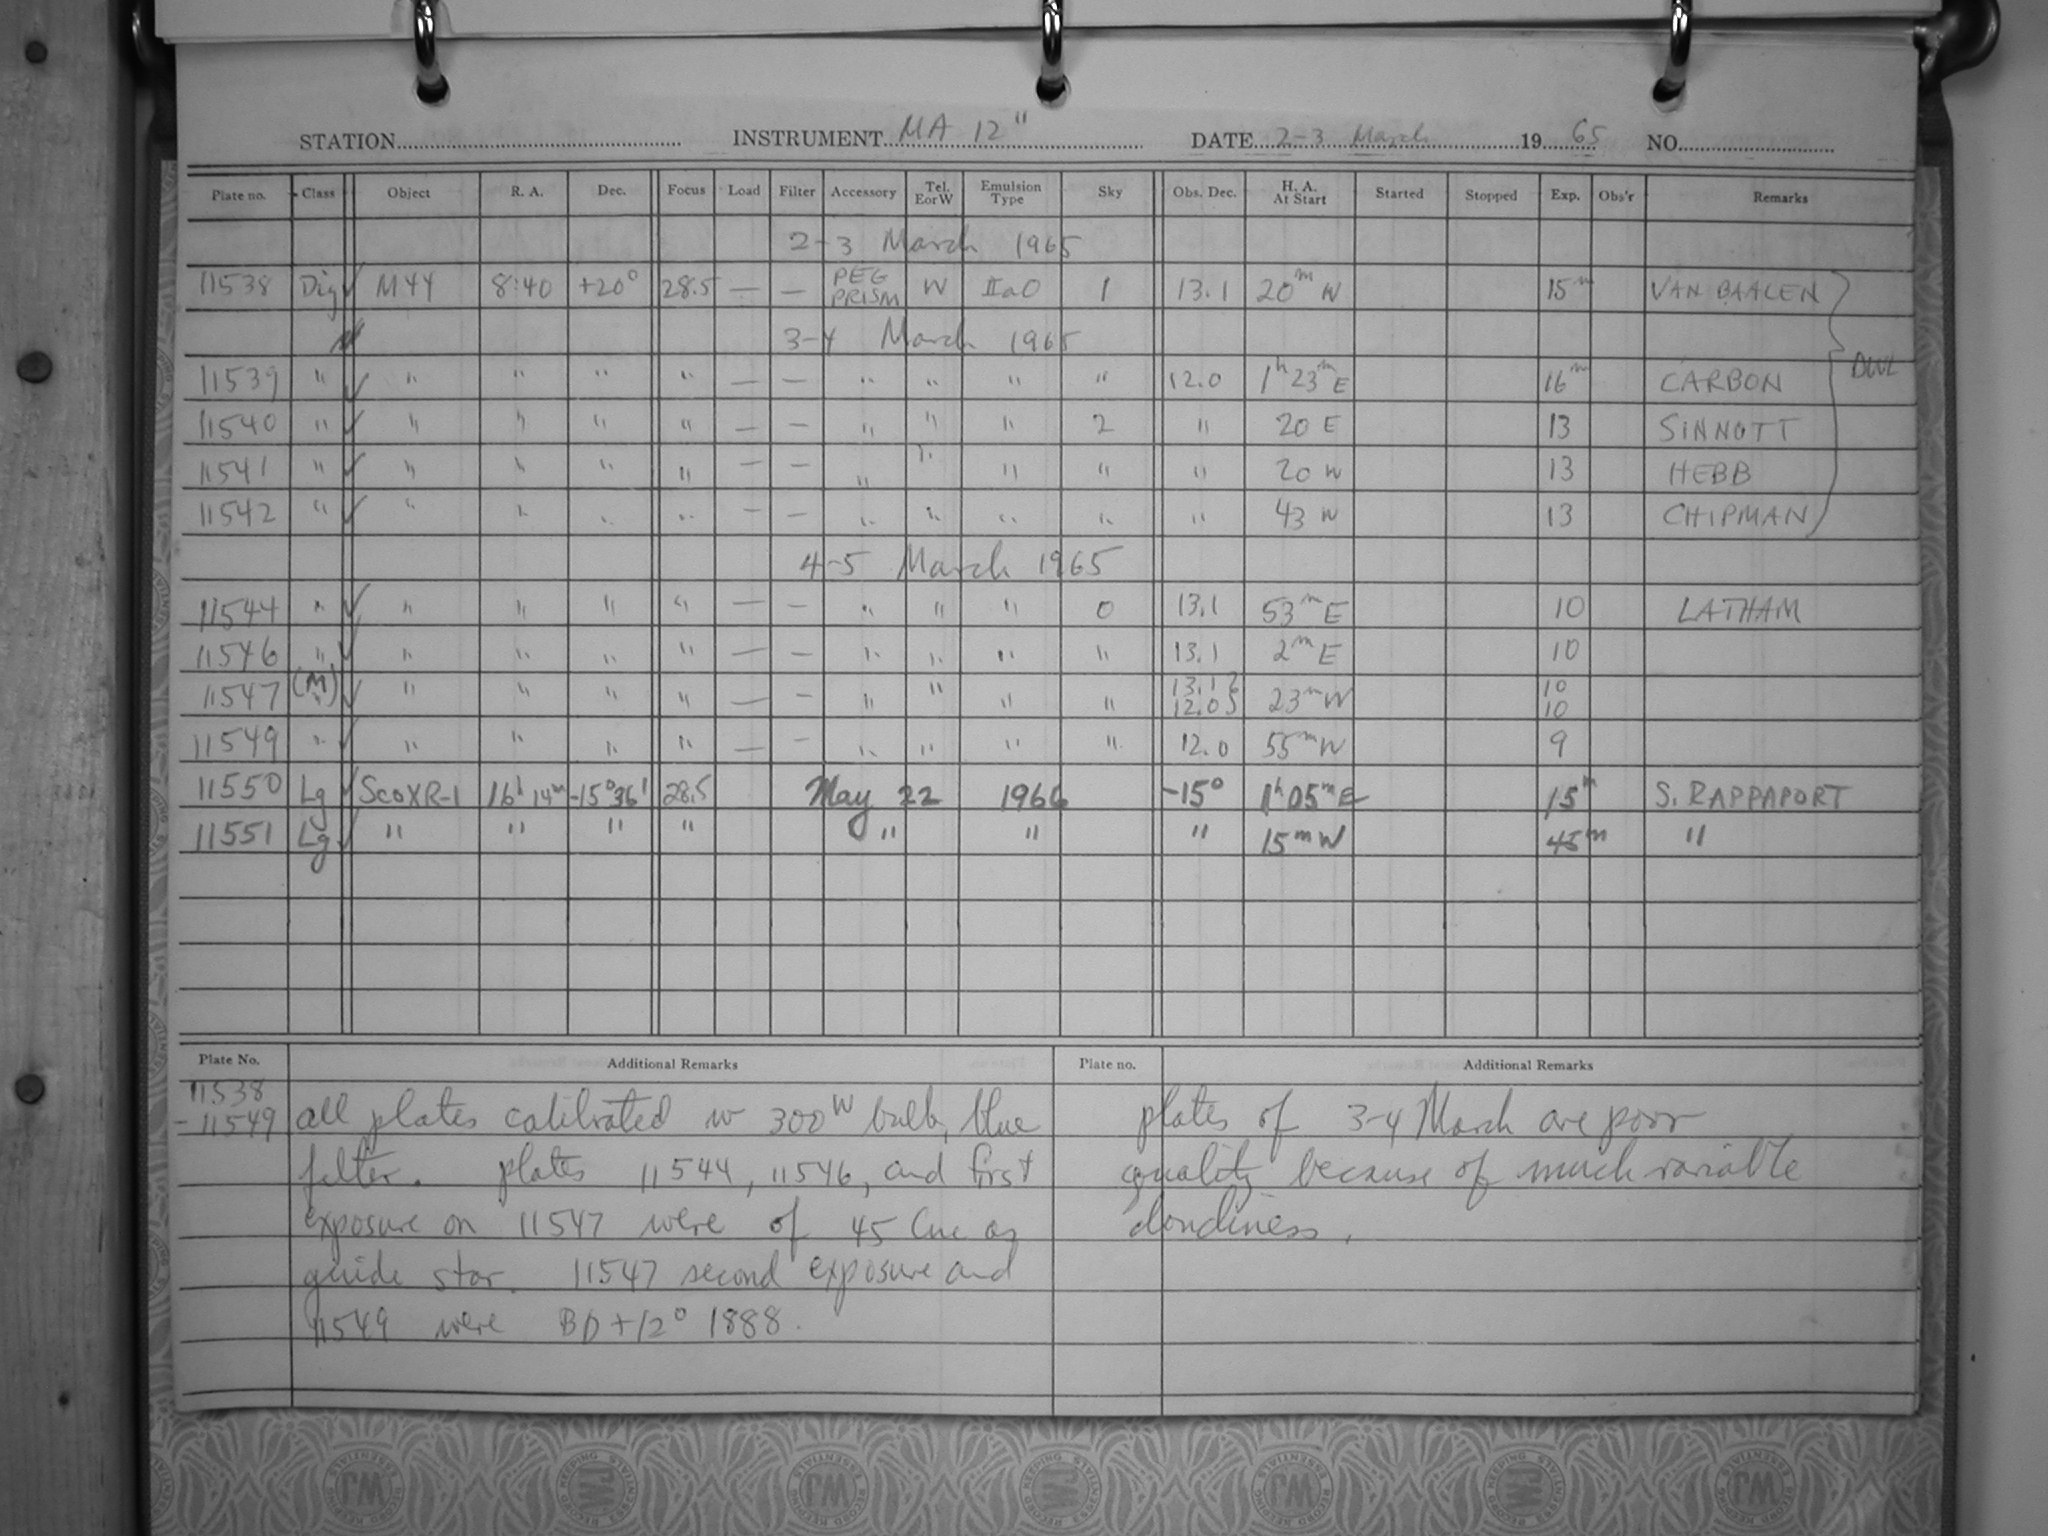 STATION INSTRUMENT MA 12" DATE 2-3 March 1965 NO.
Plate no. Class Object R. A. Dec. Focus Load Filter Accessory Tel. E or W Emulsion Type Sky Obs. Dec. H. A. At Start Started Stopped Exp. Obs'r Remarks
2-3 March 1965
11538 Dig ✓ M44 8:40 +20° 28.5 — — PEG PRISM W IIaO 1 13.1 20m W 15m VAN BAALEN
3-4 March 1965
11539 " ✓ " " " " — — " " " " 12.0 1h 23m E 16m CARBON
11540 " ✓ " " " " — — " " " 2 " 20 E 13 SINNOTT
11541 " ✓ " " " " — — " " " " " 20 W 13 HEBB
11542 " ✓ " " " " — — " " " " " 43 W 13 CHIPMAN
4-5 March 1965
11544 " ✓ " " " " — — " " " 0 13.1 53m E 10 LATHAM
11546 " ✓ " " " " — — " " " " 13.1 2m E 10
11547 (M) " ✓ " " " " — — " " " " 13.1 12.0 23m W 10 10
11549 " ✓ " " " " — — " " " " 12.0 55m W 9
11550 Lg ✓ ScoXR-1 16h 14m -15°36' 28.5 May 22 1966 -15° 1h 05m E 15m S. RAPPAPORT
11551 Lg ✓ " " " " " " " 15m W 45m "
Plate No. Additional Remarks Plate no. Additional Remarks
11538
- 11549 all plates calibrated w 300W bulb, blue
filter. plates 11544, 11546, and first
exposure on 11547 were of 45 Cnc as
guide star. 11547 second exposure and
11549 were BD+12° 1888.
plates of 3-4 March are poor
quality because of much variable
cloudiness.